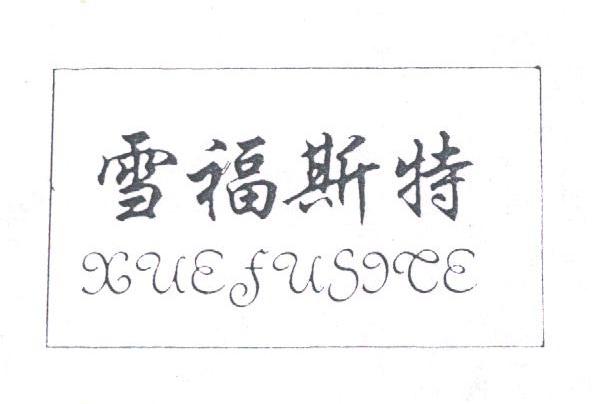 雪福斯特
XUEFUSITE